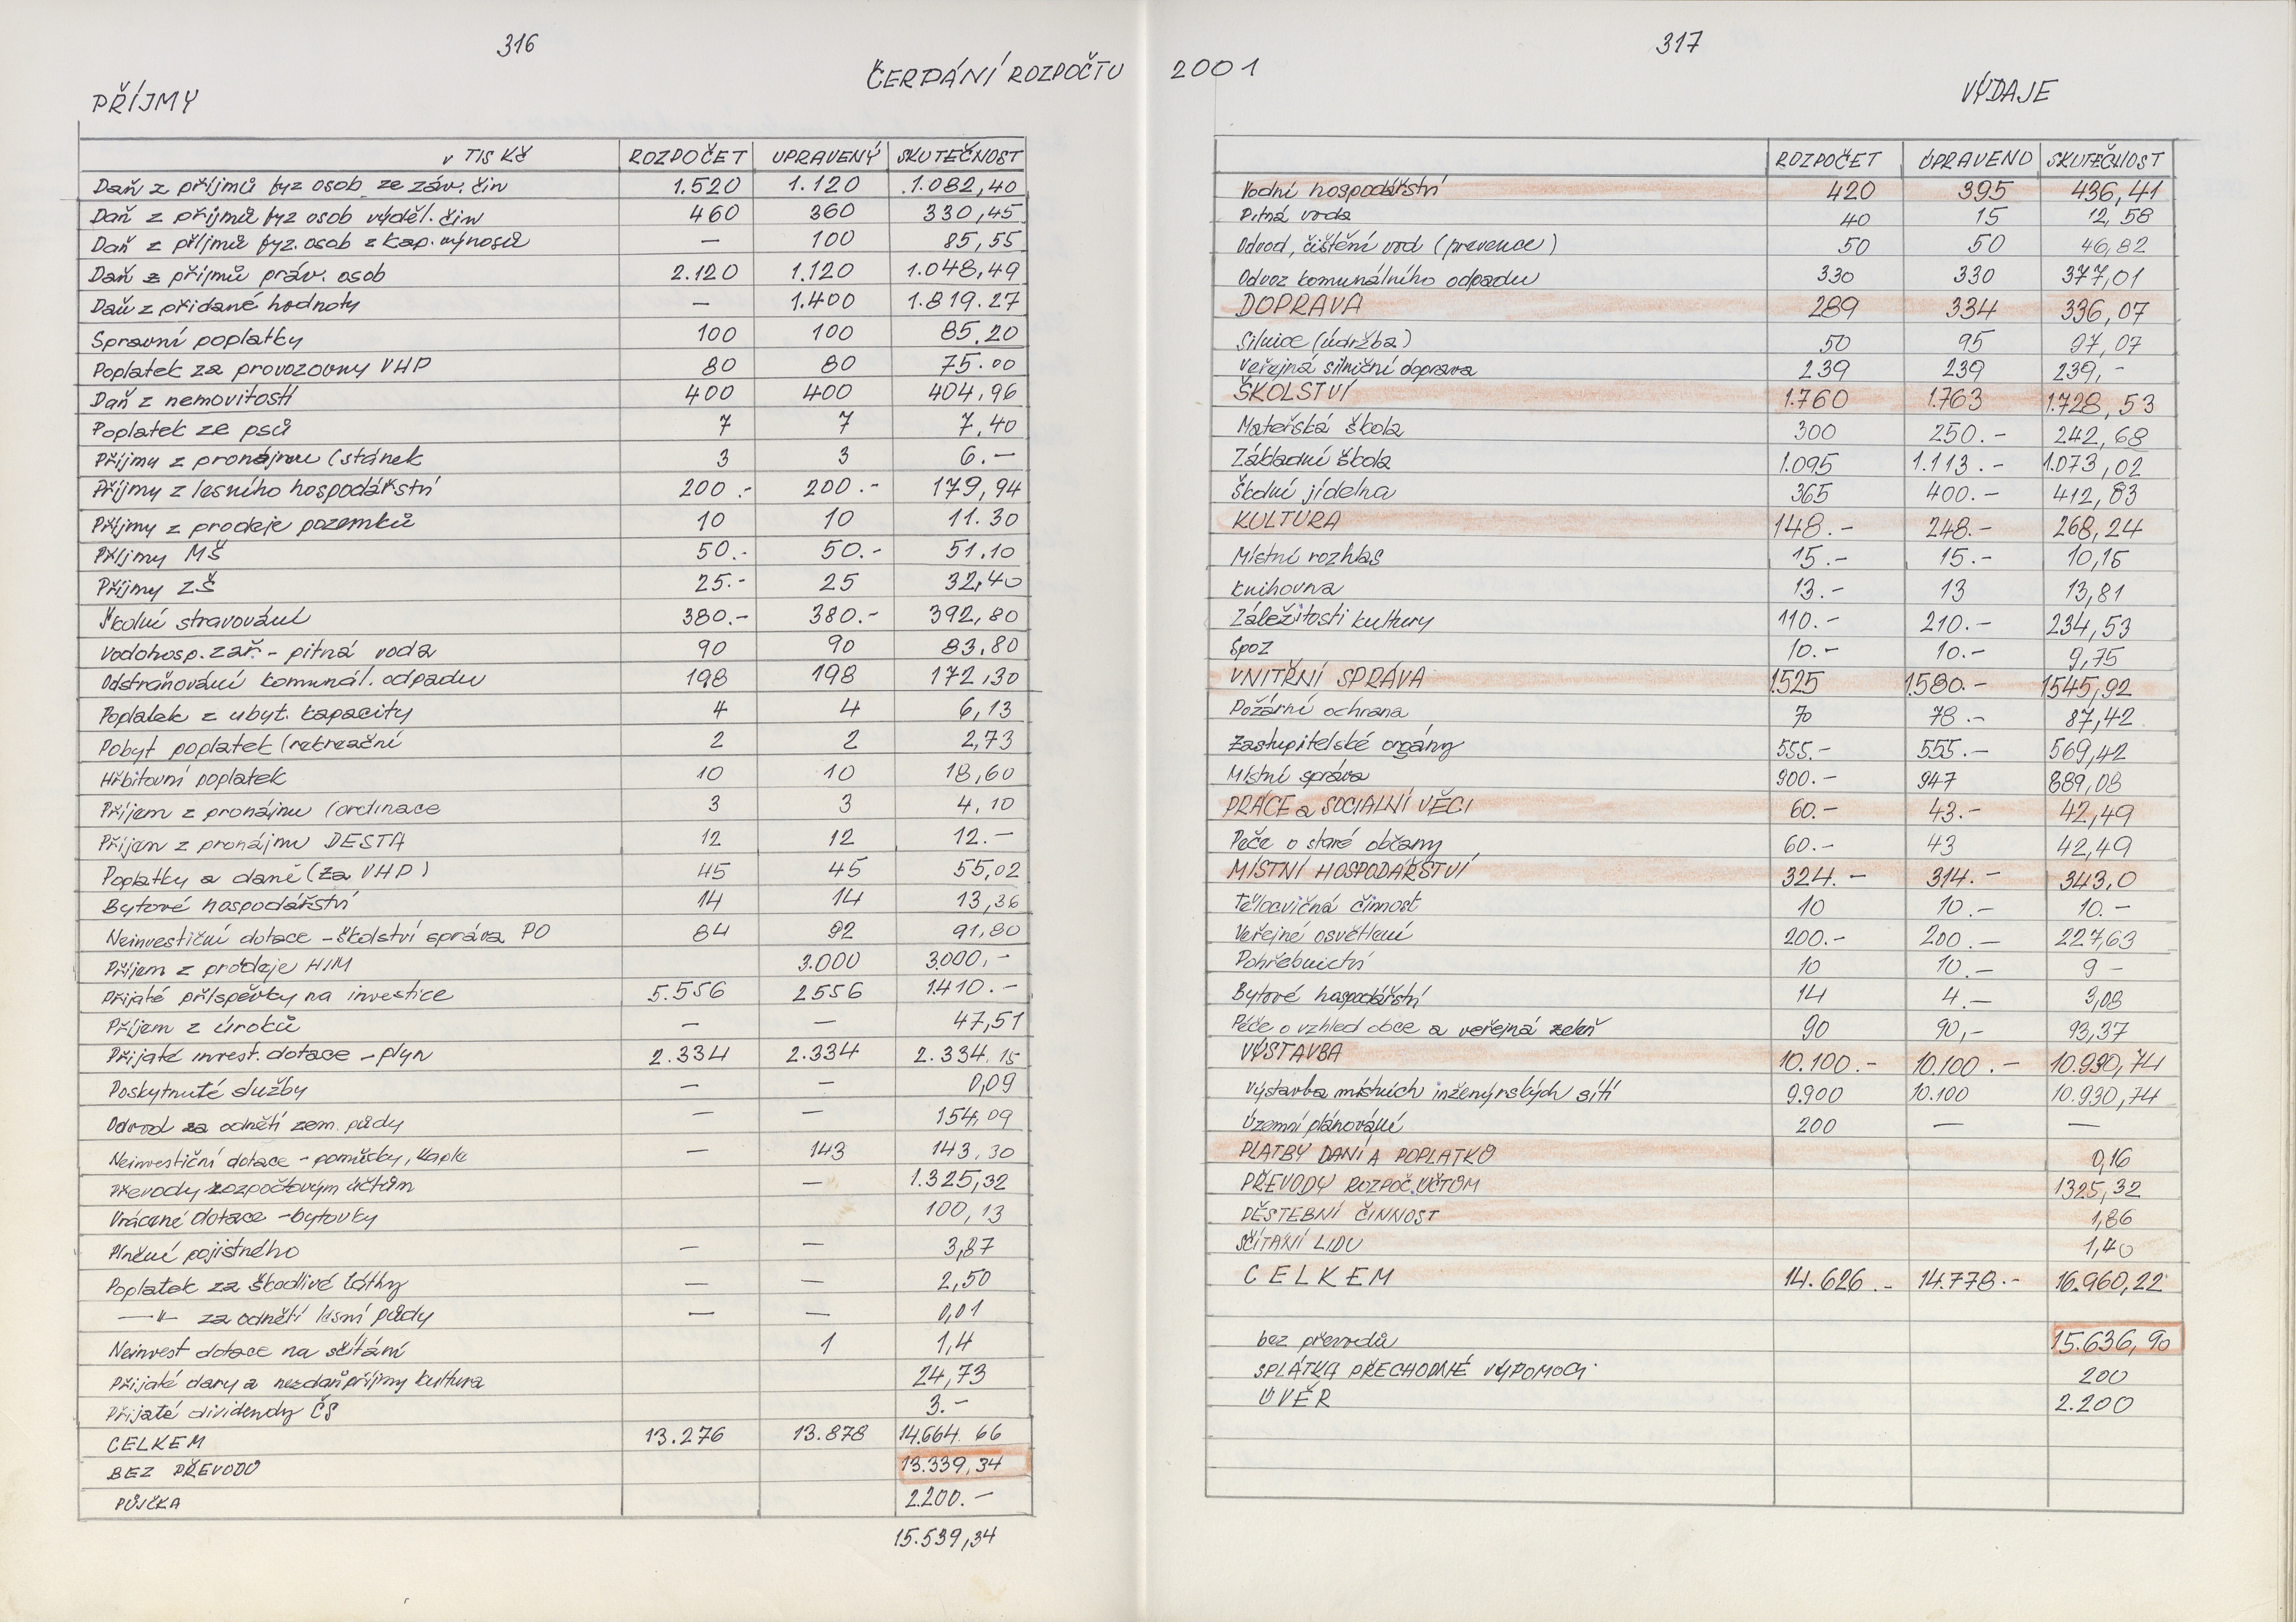 316
ČERPÁNÍ ROZPOČTU
PŘÍJMY
v TIS Kč ROZPOČET UPRAVENÝ SKUTEČNOST
Daň z příjmů fyz osob ze záv. čin 1.520 1.120 1.082,40
Daň z příjmů fyz osob výděl. čin 460 360 330,45
Daň z příjmů fyz. osob z kap. výnosů — 100 85,55
Daň z příjmů práv. osob 2.120 1.120 1.048,49
Daň z přidané hodnoty — 1.400 1.819.27
Spravní poplatky 100 100 85.20
Poplatek za provozovny VHP 80 80 75.00
Daň z nemovitostí 400 400 404,96
Poplatek ze psů 7 7 7,40
Příjmy z pronájmu (stánek 3 3 6.—
Příjmy z lesního hospodářství 200.- 200.- 179,94
Příjmy z prodeje pozemků 10 10 11.30
Příjmy MŠ 50.- 50.- 51,10
Příjmy ZŠ 25.- 25 32,40
Školní stravování 380.- 380.- 392,80
Vodohosp. zař. - pitná voda 90 90 83,80
Odstraňování komunál. odpadu 198 198 172,30
Poplatek z ubyt. kapacity 4 4 6,13
Pobyt poplatek (rekreační 2 2 2,73
Hřbitovní poplatek 10 10 18,60
Příjem z pronájmu (ordinace 3 3 4,10
Příjem z pronájmu DESTA 12 12 12.—
Poplatky a daně (za VHP) 45 45 55,02
Bytové hospodářství 14 14 13,36
Neinvestiční dotace - školství správa PO 84 92 91,80
Příjem z prodeje HIM 3.000 3.000,-
Přijaté příspěvky na investice 5.556 2556 1410.—
Příjem z úroků — — 47,51
Přijaté invest. dotace - plyn 2.334 2.334 2.334,15
Poskytnuté služby — — 0,09
Odvod za odnětí zem. půdy — — 154,09
Neinvestiční dotace - pomůcky, kaple — 143 143,30
Převody rozpočtovým účtům — 1.325,32
Vrácené dotace - bytovky 100,13
Plnění pojistného — — 3,87
Poplatek za škodlivé látky — — 2,50
—"— za odnětí lesní půdy — — 0,01
Neinvest dotace na sčítání 1 1,4
Přijaté dary a nezdaň příjmy kultura 24,73
Přijaté dividendy ČS 3.-
CELKEM 13.276 13.878 14.664.66
BEZ PŘEVODŮ 13.339,34
PŮJČKA 2.200.—
15.539,34
317
2001
VÝDAJE
ROZPOČET UPRAVENO SKUTEČNOST
Vodní hospodářství 420 395 436,41
Pitná voda 40 15 12,58
Odvod, čištění vod (prevence) 50 50 46,82
Odvoz komunálního odpadu 330 330 377,01
DOPRAVA 289 334 336,07
Silnice (údržba) 50 95 97,07
Veřejná silniční doprava 239 239 239,-
ŠKOLSTVÍ 1.760 1.763 1.728,53
Mateřská škola 300 250.- 242,68
Základní škola 1.095 1.113.- 1.073,02
Školní jídelna 365 400.- 412,83
KULTURA 148.- 248.- 268,24
Místní rozhlas 15.- 15.- 10,15
Knihovna 13.- 13 13,81
Záležitosti kultury 110.- 210.- 234,53
Spoz 10.- 10.- 9,75
VNITŘNÍ SPRÁVA 1525 1.580.- 1545,92
Požární ochrana 70 78.- 87,42
Zastupitelské orgány 555.- 555.- 569,42
Místní správa 900.- 947 889,08
PRÁCE a SOCIALNÍ VĚCI 60.- 43.- 42,49
Péče o staré občany 60.- 43 42,49
MÍSTNÍ HOSPODÁŘSTVÍ 324.- 314.- 343,0
Tělocvičná činnost 10 10.- 10.-
Veřejné osvětlení 200.- 200.— 227,63
Pohřebnictví 10 10.— 9 -
Bytové hospodářství 14 4.— 3,08
Péče o vzhled obce a veřejná zeleň 90 90,- 93,37
VÝSTAVBA 10.100.- 10.100.- 10.930,74
Výstavba místních inženýrských sítí 9.900 10.100 10.930,74
Územní plánování 200 — —
PLATBY DANÍ A POPLATKŮ 0,16
PŘEVODY ROZPOČ. ÚČTŮM 1325,32
PĚSTEBNÍ ČINNOST 1,86
SČÍTÁNÍ LIDU 1,40
CELKEM 14.626.- 14.778.- 16.960,22
bez převodů 15.636,90
SPLÁTKA PŘECHODNÉ VÝPOMOCI 200
ÚVĚR 2.200